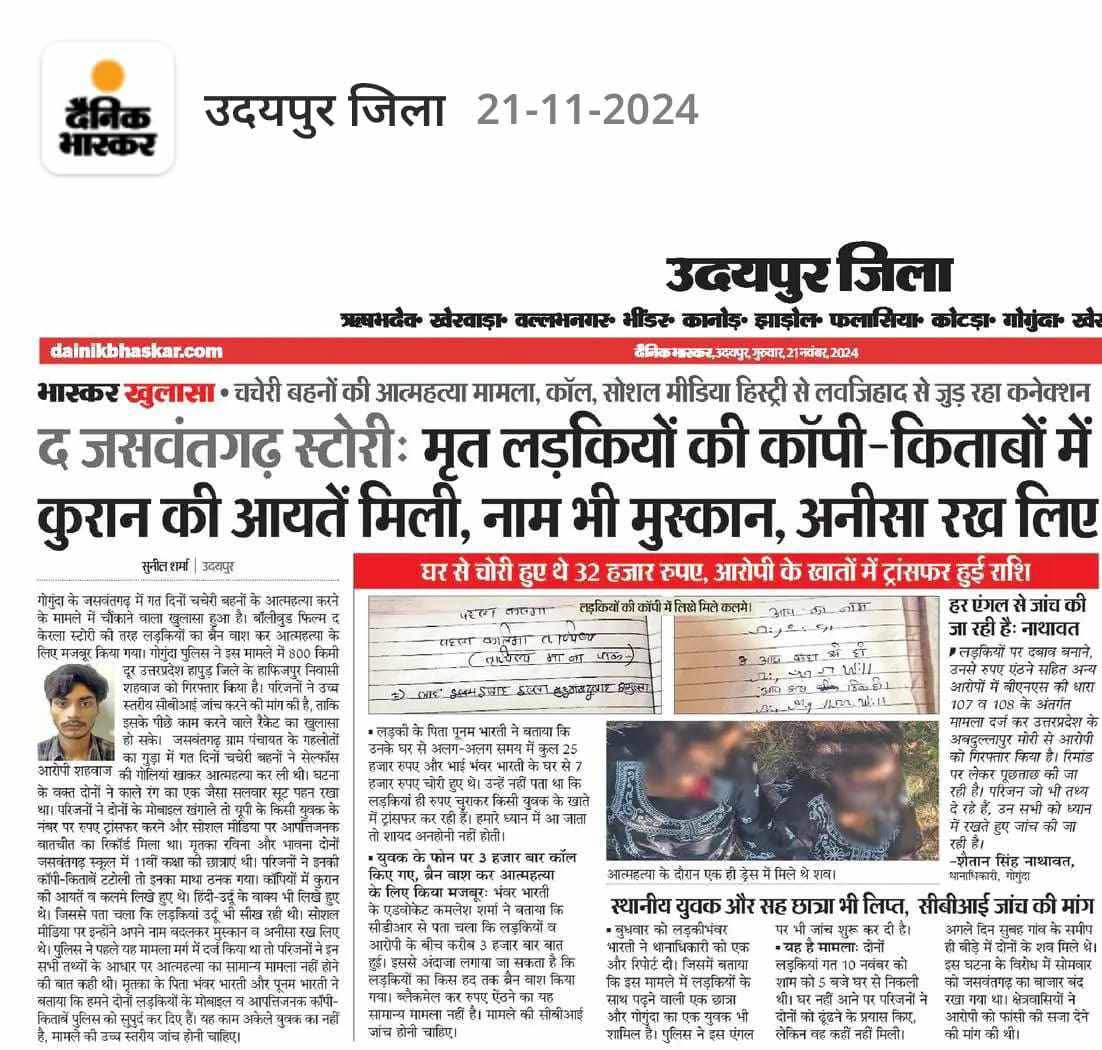 दैनिक
भास्कर
उदयपुर जिला 21-11-2024
उदयपुर जिला
ऋषभदेव• खेरवाड़ा• वल्लभनगर• भींडर• कानोड़• झाड़ोल• फलासिया• कोटड़ा• गोगुंदा• खैर
dainikbhaskar.com
दैनिक भास्कर, उदयपुर, गुरुवार, 21 नवंबर, 2024
भास्कर खुलासा • चचेरी बहनों की आत्महत्या मामला, कॉल, सोशल मीडिया हिस्ट्री से लवजिहाद से जुड़ रहा कनेक्शन
द जसवंतगढ़ स्टोरीः मृत लड़कियों की कॉपी-किताबों में
कुरान की आयतें मिली, नाम भी मुस्कान, अनीसा रख लिए
सुनील शर्मा | उदयपुर
गोगुंदा के जसवंतगढ़ में गत दिनों चचेरी बहनों के आत्महत्या करने
के मामले में चौंकाने वाला खुलासा हुआ है। बॉलीवुड फिल्म द
केरला स्टोरी की तरह लड़कियों का ब्रैन वाश कर आत्महत्या के
लिए मजबूर किया गया। गोगुंदा पुलिस ने इस मामले में 800 किमी
दूर उत्तरप्रदेश हापुड़ जिले के हाफिजपुर निवासी
शहवाज को गिरफ्तार किया है। परिजनों ने उच्च
स्तरीय सीबीआई जांच करने की मांग की है, ताकि
इसके पीछे काम करने वाले रैकेट का खुलासा
हो सके। जसवंतगढ़ ग्राम पंचायत के गहलोतों
का गुड़ा में गत दिनों चचेरी बहनों ने सेल्फॉस
आरोपी शहवाज
की गोलियां खाकर आत्महत्या कर ली थी। घटना
के वक्त दोनों ने काले रंग का एक जैसा सलवार सूट पहन रखा
था। परिजनों ने दोनों के मोबाइल खंगाले तो यूपी के किसी युवक के
नंबर पर रुपए ट्रांसफर करने और सोशल मीडिया पर आपत्तिजनक
बातचीत का रिकॉर्ड मिला था। मृतका रविना और भावना दोनों
जसवंतगढ़ स्कूल में 11वीं कक्षा की छात्राएं थी। परिजनों ने इनकी
कॉपी-किताबें टटोली तो इनका माथा ठनक गया। कॉपियों में कुरान
की आयतें व कलमे लिखे हुए थे। हिंदी-उर्दू के वाक्य भी लिखे हुए
थे। जिससे पता चला कि लड़कियां उर्दू भी सीख रही थी। सोशल
मीडिया पर इन्होंने अपने नाम बदलकर मुस्कान व अनीसा रख लिए
थे। पुलिस ने पहले यह मामला मर्ग में दर्ज किया था तो परिजनों ने इन
सभी तथ्यों के आधार पर आत्महत्या का सामान्य मामला नहीं होने
की बात कही थी। मृतका के पिता भंवर भारती और पूनम भारती ने
बताया कि हमने दोनों लड़कियों के मोबाइल व आपत्तिजनक कॉपी-
किताबें पुलिस को सुपुर्द कर दिए हैं। यह काम अकेले युवक का नहीं
है, मामले की उच्च स्तरीय जांच होनी चाहिए।
घर से चोरी हुए थे 32 हजार रुपए, आरोपी के खातों में ट्रांसफर हुई राशि
लड़कियों की कॉपी में लिखे मिले कलमे।
पहला कलमा
पहला कलिमा
▪ लड़की के पिता पूनम भारती ने बताया कि
उनके घर से अलग-अलग समय में कुल 25
हजार रुपए और भाई भंवर भारती के घर से 7
हजार रुपए चोरी हुए थे। उन्हें नहीं पता था कि
लड़कियां ही रुपए चुराकर किसी युवक के खाते
में ट्रांसफर कर रही हैं। हमारे ध्यान में आ जाता
तो शायद अनहोनी नहीं होती।
▪ युवक के फोन पर 3 हजार बार कॉल
किए गए, ब्रैन वाश कर आत्महत्या
के लिए किया मजबूरः भंवर भारती
के एडवोकेट कमलेश शर्मा ने बताया कि
सीडीआर से पता चला कि लड़कियों व
आरोपी के बीच करीब 3 हजार बार बात
हुई। इससे अंदाजा लगाया जा सकता है कि
लड़कियों का किस हद तक ब्रैन वाश किया
गया। ब्लैकमेल कर रुपए ऐंठने का यह
सामान्य मामला नहीं है। मामले की सीबीआई
जांच होनी चाहिए।
आप का नाम
आत्महत्या के दौरान एक ही ड्रेस में मिले थे शव।
हर एंगल से जांच की
जा रही हैः नाथावत
लड़कियों पर दबाव बनाने,
उनसे रुपए एंठने सहित अन्य
आरोपों में बीएनएस की धारा
107 व 108 के अंतर्गत
मामला दर्ज कर उत्तरप्रदेश के
अबदुल्लापुर मोरी से आरोपी
को गिरफ्तार किया है। रिमांड
पर लेकर पूछताछ की जा
रही है। परिजन जो भी तथ्य
दे रहे हैं, उन सभी को ध्यान
में रखते हुए जांच की जा
रही है।
-शैतान सिंह नाथावत,
थानाधिकारी, गोगुंदा
स्थानीय युवक और सह छात्रा भी लिप्त, सीबीआई जांच की मांग
▪ बुधवार को लड़कीभंवर
भारती ने थानाधिकारी को एक
और रिपोर्ट दी। जिसमें बताया
कि इस मामले में लड़कियों के
साथ पढ़ने वाली एक छात्रा
और गोगुंदा का एक युवक भी
शामिल है। पुलिस ने इस एंगल
पर भी जांच शुरू कर दी है।
▪ यह है मामलाः दोनों
लड़कियां गत 10 नवंबर को
शाम को 5 बजे घर से निकली
थी। घर नहीं आने पर परिजनों ने
दोनों को ढूंढने के प्रयास किए,
लेकिन वह कहीं नहीं मिली।
अगले दिन सुबह गांव के समीप
ही बीड़े में दोनों के शव मिले थे।
इस घटना के विरोध में सोमवार
को जसवंतगढ़ का बाजार बंद
रखा गया था। क्षेत्रवासियों ने
आरोपी को फांसी की सजा देने
की मांग की थी।